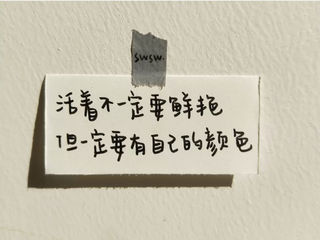 swsw.
活着不一定要鲜艳
但一定要有自己的颜色